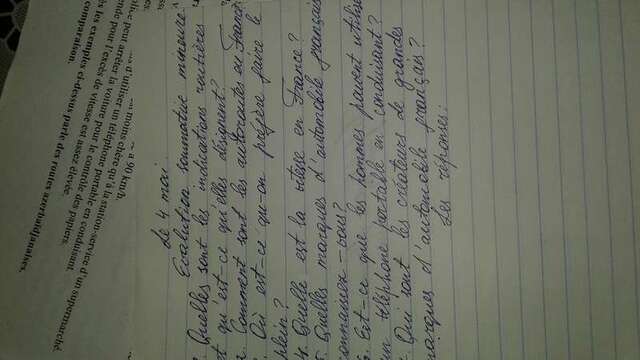 comparaison.
les exemples ci-dessus parle des routes azerbaïdjanaises.
pour l'excès de vitesse est assez élevée.
peut arrêter la voiture pour le contrôle des papiers.
d'utiliser un téléphone portable en conduisant.
moins chère qu'à la station-service d'un supermarché.
a 90 km/h.
Le 4 mai
Evalution sommative mineure.
Quelles sont les indications routières
et qu'est-ce qu'elles désignent?
2. Comment sont les autoroutes en France
Où est-ce que-on préfère faire le
plein?
4. Quelle est la vitesse en France?
5. Quelles marques d'automobile français
connaissez-vous?
6. Est-ce que les hommes peuvent utilise
un téléphone portable en conduisant?
Qui sont les créateurs de grandes
marques d'automobile français?
Les réponses: